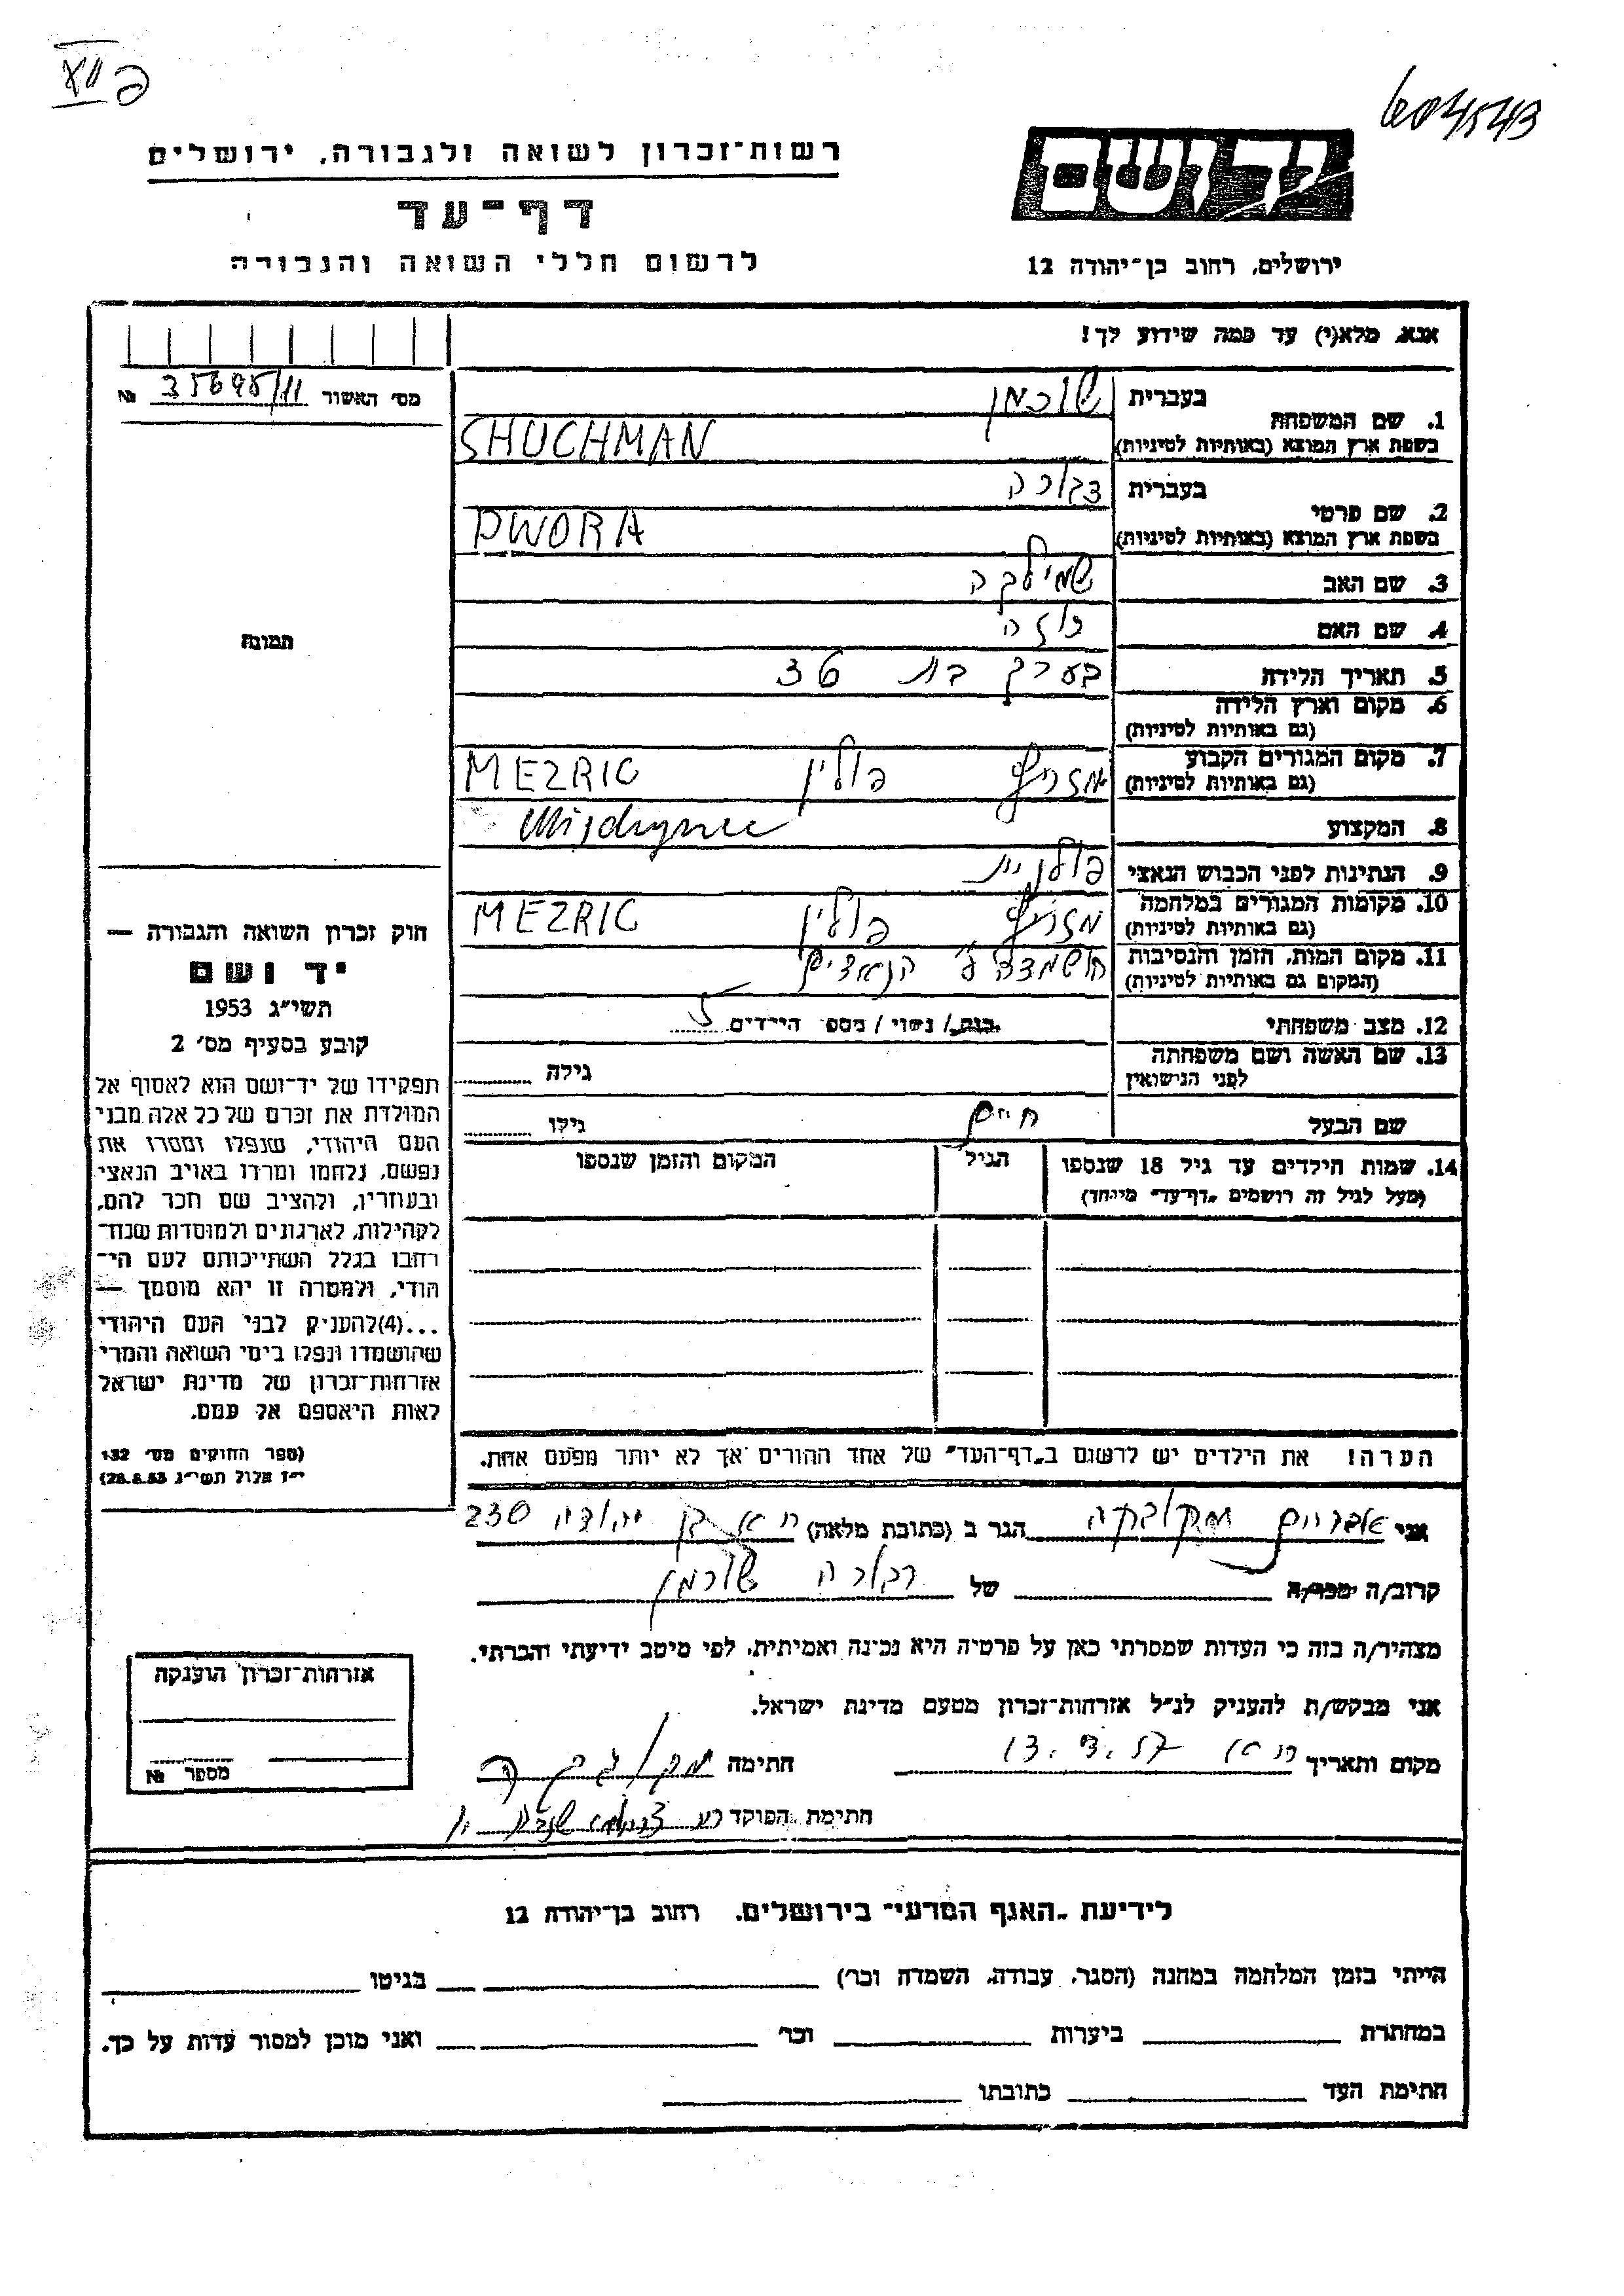 604543
רשות־זכרון לשואה ולגבורה, ירושלים
דף־עד
לרשום חללי השואה והגבורה
יד ושם
ירושלים, רחוב בן־יהודה 12
אנא, מלא(י) עד כמה שידוע לך!
מס׳ האשור № 35695/11
1. שם המשפחה
בעברית שוכמן
בשפת ארץ המוצא (באותיות לטיניות) SHUCHMAN
2. שם פרטי
בעברית דבורה
בשפת ארץ המוצא (באותיות לטיניות) DWORA
3. שם האב
4. שם האם
תמונה
5. תאריך הלידה בערך בת 36
6. מקום וארץ הלידה
(גם באותיות לטיניות)
7. מקום המגורים הקבוע
(גם באותיות לטיניות) מזריץ פולין MEZRIC
8. המקצוע
9. הנתינות לפני הכבוש הנאצי פולנית
10. מקומות המגורים במלחמה
(גם באותיות לטיניות) מזריץ פולין MEZRIC
11. מקום המות, הזמן והנסיבות
(המקום גם באותיות לטיניות) הושמדה ע״י הנאצים
12. מצב משפחתי
רווק/ נשוי / מספר הילדים 5
13. שם האשה ושם משפחתה
לפני הנישואין
גילה
שם הבעל חיים
גילו
14. שמות הילדים עד גיל 18 שנספו
(מעל לגיל זה רושמים „דף־עד״ מייוחד)
הגיל
המקום והזמן שנספו
חוק זכרון השואה והגבורה —
יד ושם
תשי״ג 1953
קובע בסעיף מס׳ 2
תפקידו של יד־ושם הוא לאסוף אל
המולדת את זכרם של כל אלה מבני
העם היהודי, שנפלו ומסרו את
נפשם, נלחמו ומרדו באויב הנאצי
ובעוזריו, ולהציב שם וזכר להם,
לקהילות, לארגונים ולמוסדות שנח־
רבו בגלל השתייכותם לעם הי־
הודי, ולמטרה זו יהא מוסמך —
...(4)להעניק לבני העם היהודי
שהושמדו ונפלו בימי השואה והמרי
אזרחות־זכרון של מדינת ישראל
לאות היאספם אל עמם.
(ספר החוקים מס׳ 132
י״ז אלול תשי״ג 28.8.53)
הערה! את הילדים יש לרשום ב„דף־העד״ של אחד ההורים אך לא יותר מפעם אחת.
אני אברהם הגר ב (כתובת מלאה) ת א בן יהודה 230
קרוב/ה מכר/ה של דבורה שוכמן
מצהיר/ה בזה כי העדות שמסרתי כאן על פרטיה היא נכונה ואמיתית, לפי מיטב ידיעתי והכרתי.
אני מבקש/ת להעניק לנ״ל אזרחות־זכרון מטעם מדינת ישראל.
מקום ותאריך ת א 13. 3. 57 חתימה
חתימת הפוקד
אזרחות־זכרון הוענקה
מספר №
לידיעת „האגף המדעי״ בירושלים. רחוב בן־יהודה 12
הייתי בזמן המלחמה במחנה (הסגר, עבודה, השמדה וכר׳) בגיטו
במחתרת ביערות וכר׳ ואני מוכן למסור עדות על כך.
חתימת העד כתובתו